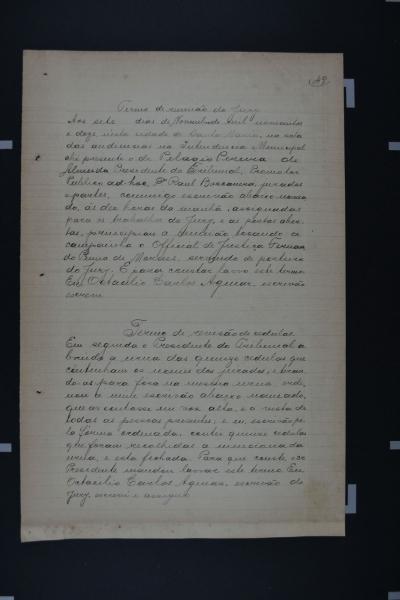 49
Termo de reunião do Jury
Aos sete dias de Novembro de mil novecentos
e doze nesta cidade de Santa Maria, na sala
das audiencias na Intendencia Municipal
ahi presente o dr Pelagio Pereira de
Almeida Presidente do Tribunal, Promotor
Publico ad-hoc, Dr Raul jurados
e partes, commigo escrivão abaixo nomea
do, ás dez horas da manhã, assignadas
para os trabalhos do Jury, e as portas aber
tas, principiou a sessão tocando a
campainha o Official de Justiça
do de Moraes, servindo de porteiro
do Jury. E para constar lavro este termo.
Eu Octacilio Carlos Aguiar, escrivão
escrevi
Termo de revisão de cedulas
Em seguida o Presidente do Tribunal a
brindo a urna das quinze cedulas que
continham os nomes dos jurados, e tiran
do as para fora na mesma urna, orde
nou a mim escrivão abaixo nomeado,
que as contasse em voz alta, e a vista de
todas as pessoas presentes; e eu, escrivão pe
la forma ordenada, contei quinze cedulas
que foram recolhidas a mencionada
urna, e esta fechada. Para que conste, o
Presidente mandou lavrar este termo Eu
Octacilio Carlos Aguiar, escrivão do
Jury, escrevi e assigno